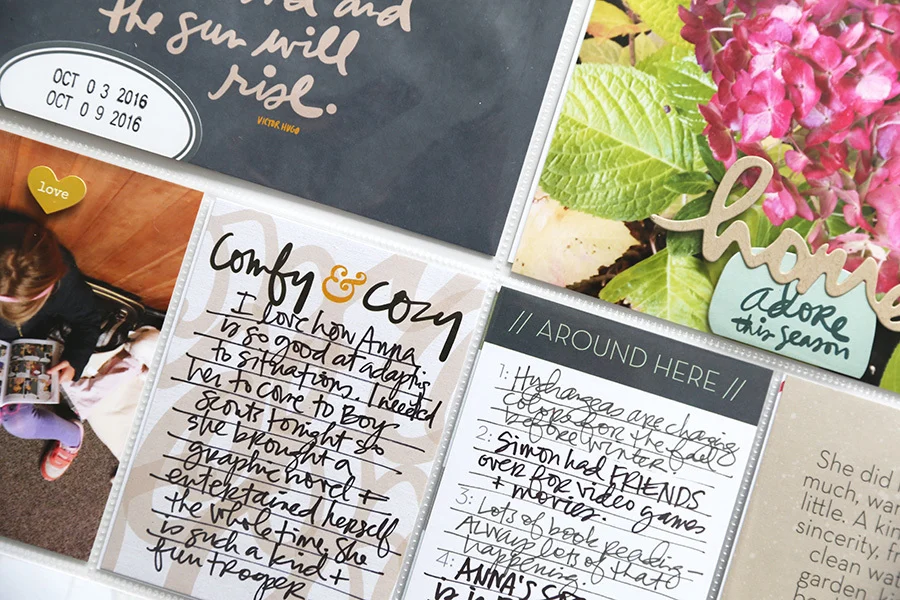 and
the sun will
rise.
VICTOR HUGO
OCT 03 2016
OCT 09 2016
love
home
adore
this season
comfy & cozy
I love how Anna
is so good at adapting
to situations. I needed
her to come to Boy
Scouts tonight so
she brought a
graphic novel +
entertained herself
the whole time. She
is such a kind +
fun trooper
// AROUND HERE //
1: Hydrangeas are changing
colors for the fall
before winter
2: Simon had FRIENDS
over for video games
+ movies.
3: Lots of book reading –
Always lots of that
happening.
4: ANNA'S
is in
She did
much, wan
little. A kin
sincerity, fr
clean wat
garden, ki